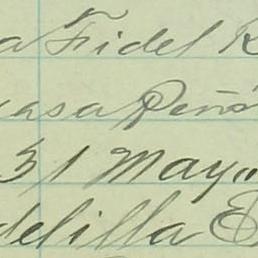 a Fidel R
casa Peñó
31 May"
delilla E